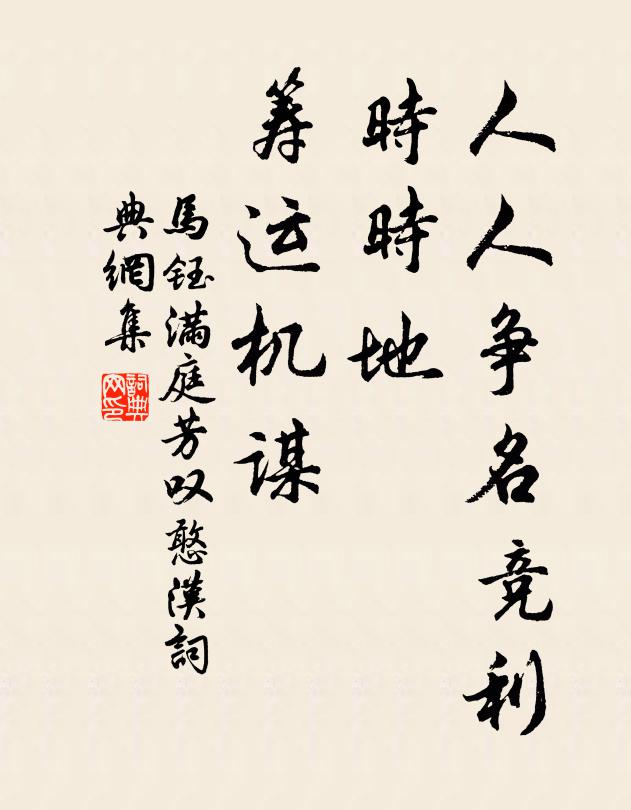 人人争名竞利
時時地
筹运机谋
馬鈺滿庭芳叹憨漢詞
典網集
詞典网印